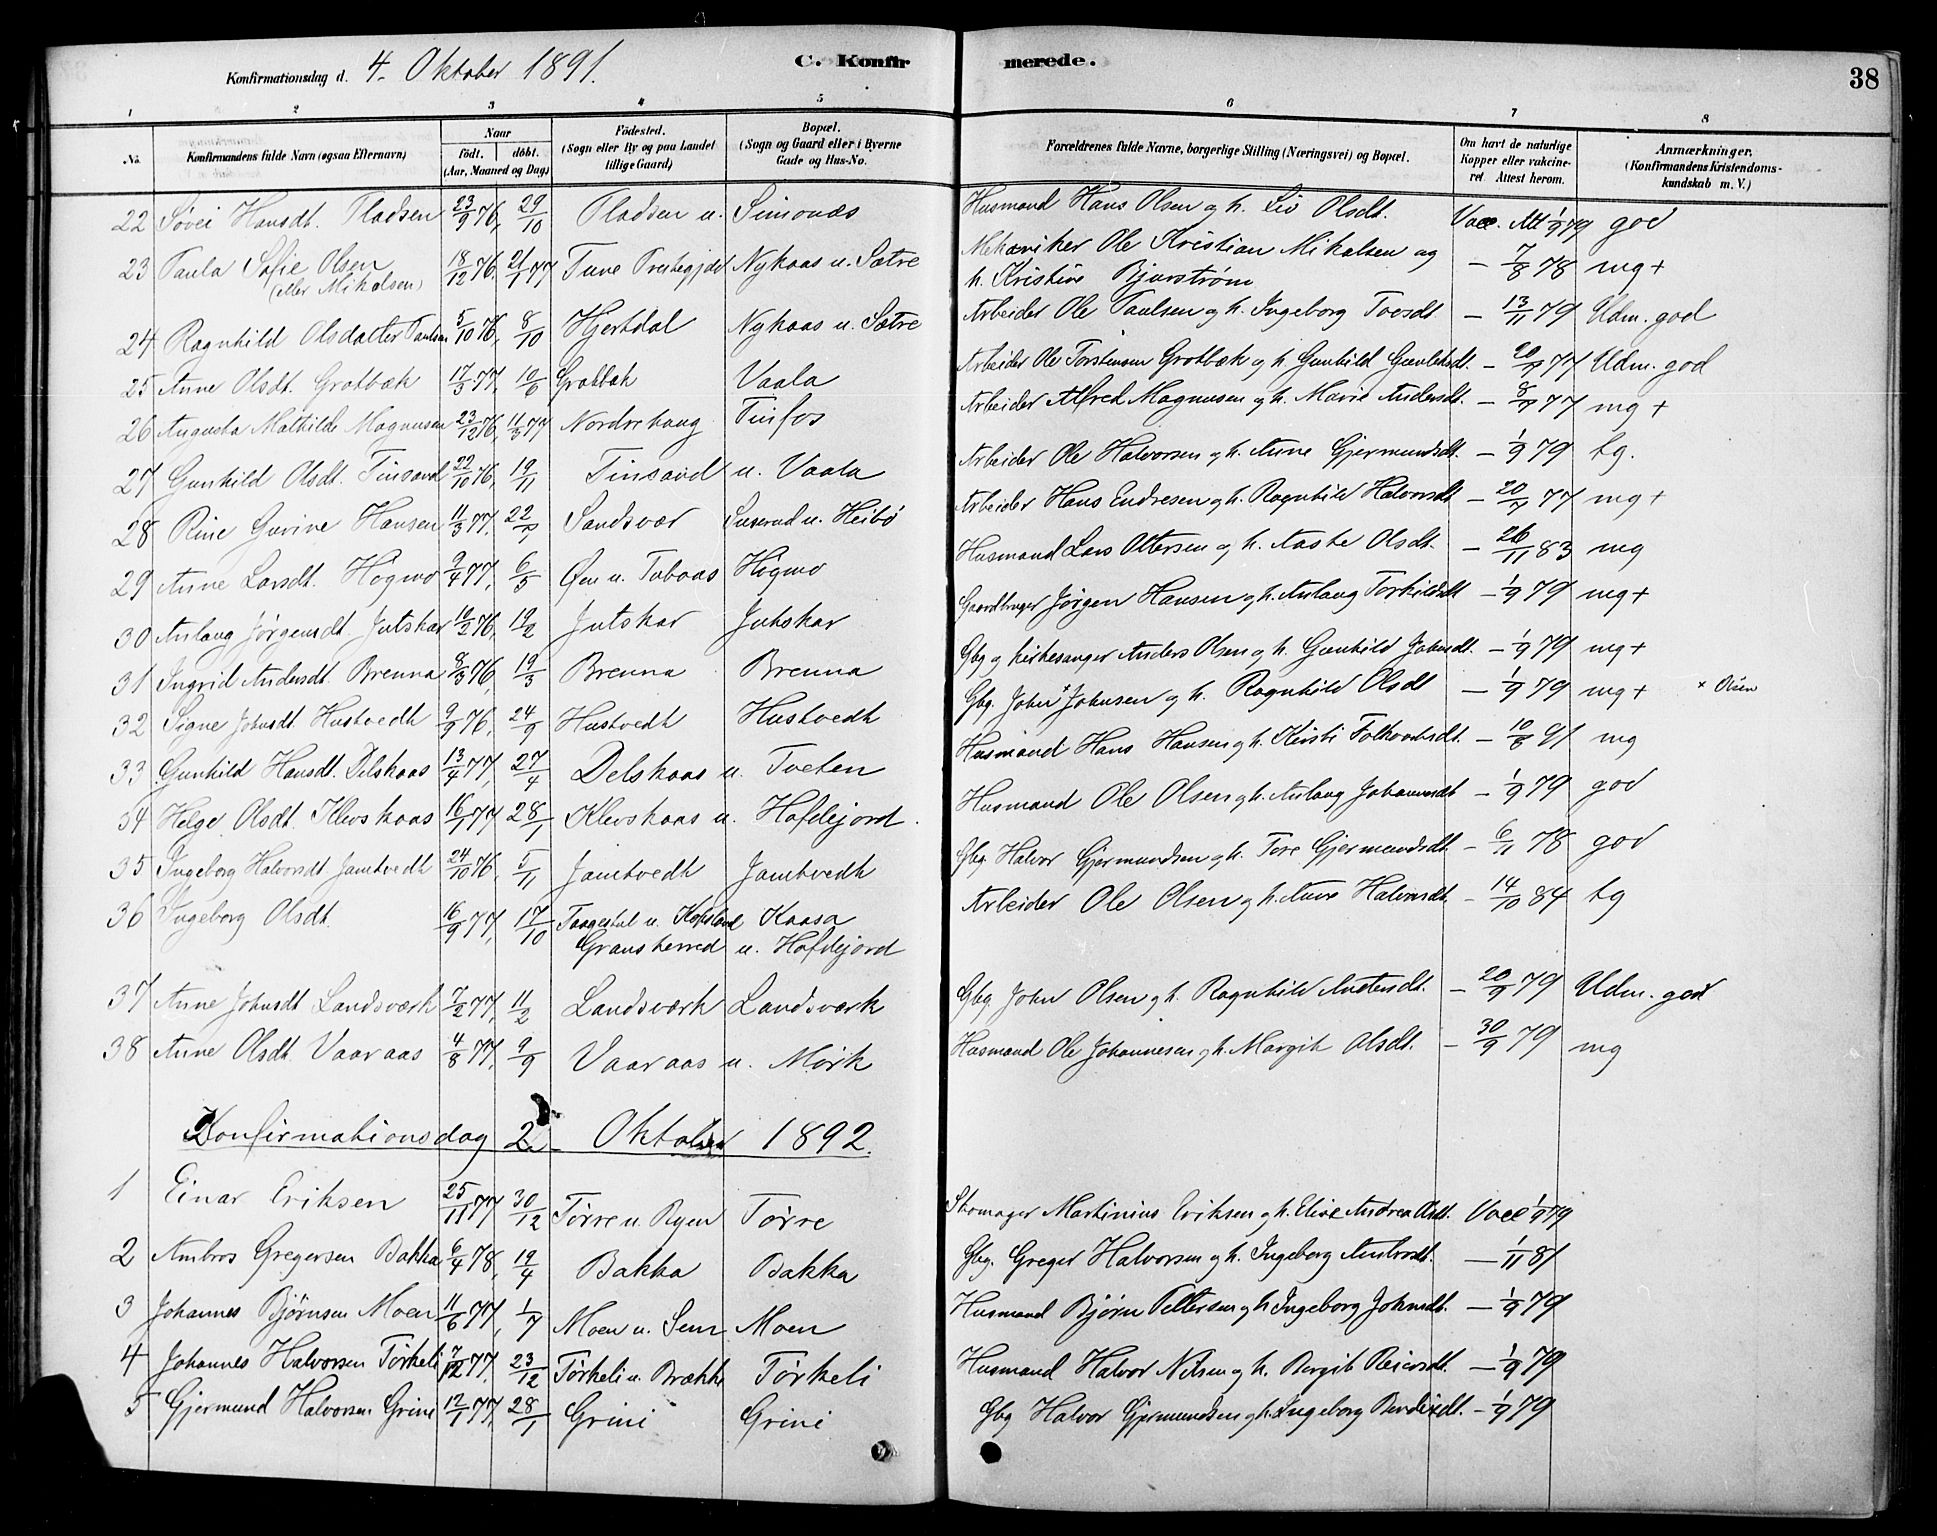 Konfirmationsdag d. 4. Oktober 1891.
C. Konfirmerede.
38
1 2 3 4 5 6 7 8
No. Konfirmandens fulde Navn (ogsaa Efternavn) Naar födt. döbt. (Aar, Maaned og Dag) Födested. (Sogn eller By og paa Landet tillige Gaard) Bopæl. (Sogn og Gaard eller i Byerne Gade og Hus-No. Forældrenes fulde Navne, borgerlige Stilling (Næringsvei) og Bopæl. Om havt de naturlige Kopper eller vakcineret. Attest herom. Anmærkninger, (Konfirmandens Kristendomskundskab m. V.)
22 Søvei Hansdt. Pladsen 23/9 76, 29/10 Pladsen u. Simonæs Husmand Hans Olsen og h. Liv Olsdt. Vacc. Att 1/9 79 god
23 Paula Sofie Olsen (eller Mikalsen) 18/12 76, 21/1 77 Tune Prestegjæld Nykaas u. Sætre Mekaniker Ole Kristian Mikalsen og h. Kristine Bjurstrøm — 7/8 78 mg +
24 Ragnhild Olsdatter Paulsen 5/10 76, 8/10 Hjertdal Nykaas u. Sætre Arbeider Ole Paulsen og h. Ingeborg Tovsdt — 13/11 79 Udm. god
25 Anne Olsdt. Grotbæk 17/3 77, 10/6 Grotbæk Vaala Arbeider Ole Torstensen Grotbæk og h. Gunhild Gunleksdt. — 20/7 77 Udm. god
26 Augusta Mathilde Magnusen 23/12 76, 11/3 77 Nordrehaug Tinfos Arbeider Alfred Magnusen og h. Marie Andersdt. — 8/7 77 mg +
27 Gunhild Olsdt. Tinsand 22/10 76, 19/11 Tinsand u. Vaala Arbeider Ole Halvorsen og h. Anne Gjermundsdt. — 1/9 79 tg.
28 Rine Gurine Hansen 11/3 77, 22/7 Sandsvær Suserud u. Heibö Arbeider Hans Endresen og h. Ragnhild Halvorsdt — 20/7 77 mg +
29 Anne Larsdt. Högmo 9/4 77, 6/5 Øen u. Tubaas Högmo Husmand Lars Ottersen og h. Aaste Olsdt. — 26/11 83 mg
30 Aslaug Jørgensdt Jutskar 10/2 76, 19/2 Jutskar Jutskar Gaardbruger Jørgen Hansen og h. Aslaug Torkildsdt — 1/9 79 mg +
31 Ingrid Andersdt. Brenna 8/3 76, 19/3 Brenna Brenna Gbg og kirkesanger Anders Olsen og h. Gunhild Johnsdt. — 1/9 79 mg +
32 Signe Johnsdt Hustvedt 9/9 76, 24/9 Hustvedt Hustvedt Gbg. John × Johnsen og h. Ragnhild Olsdt — 1/9 79 mg + × Olsen
33 Gunhild Hansdt. Delskaas 13/4 77, 27/4 Delskaas u. Tveten Husmand Hans Hansen og h. Kirsti Folkvardsdt. — 10/8 91 mg
34 Helge Olsdt. Klevskaas 16/1 77 28/1 Klevskaas u. Hafdejord. Husmand Ole Olsen og h. Aslaug Johannesdt — 1/9 79 god
35 Ingeborg Halvorsdt Jamtvedt 24/10 76, 5/11 Jamtvedt Jamtvedt Gbg. Halvor Gjermundsen og h. Tore Gjermundsdt. — 6/11 78 god
36 Ingeborg Olsdt. 16/9 77, 17/10 Taagestul u. Kopsland Gransherred Kaasa u. Hafdejord Arbeider Ole Olsen og h. Anne Halvorsdt. — 14/10 84 tg
37 Anne Johnsdt Landsværk 7/2 77, 11/2 Landsværk Landsværk Gbg. John Olsen og h. Ragnhild Austensdt. — 20/9 79 Udm. god
38 Anne Olsdt. Vaaraas 4/8 77, 9/9 Vaaraas u. Mörk Husmand Ole Johannesen og h. Margit Olsdt. — 30/9 79 mg
Konfirmationsdag 2. Oktober 1892.
1 Einar Eriksen 25/11 77 30/12 Törre u. Ryen Törre Skomager Martinius Eriksen og h. Elise Andrea Olsdt. Vacc 1/9 79
2 Ambros Gregersen Bakka 6/4 78, 19/4 Bakka Bakka Gbg. Greger Halvorsen og h. Ingeborg Ambrosdt. — 1/11 81
3 Johannes Bjørnsen Moen 11/6 77, 1/7 Moen u. Sem Moen Husmand Bjørn Pettersen og h Ingeborg Johnsdt. — 1/9 79
4 Johannes Halvorsen Törkeli 7/12 77, 23/12 Törkeli u. Brække Törkeli Husmand Halvor Nilsen og h. Bergit Reiersdt. — 1/9 79
5 Gjermund Halvorsen Grini 12/1 77, 28/1 Grini Grini Gbg Halvor Gjermundsen og h. Ingeborg Bendixdt. — 1/9 79